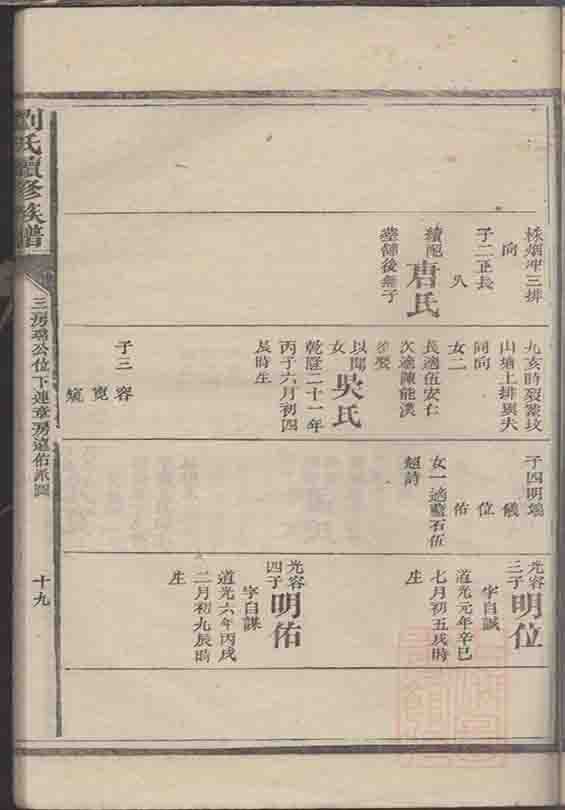 子二正長
八
續配
唐氏
子
九亥時
山塘上排
同向
女二
長適伍安仁
次適陳能漢
以聞
女
吳氏
乾隆二十一年
丙子六月初四
辰時生
子三容
寬
子四明
儀
位
佑
女一適藍石伍
超詩
光容
三子
明位
字自誠
道光元年辛巳
七月初五戌時
生
光容
四子
明佑
字自謀
道光六年丙戌
二月初九辰時
生
劉氏續修族譜
三房 公位下連章房 佑派圖
十九